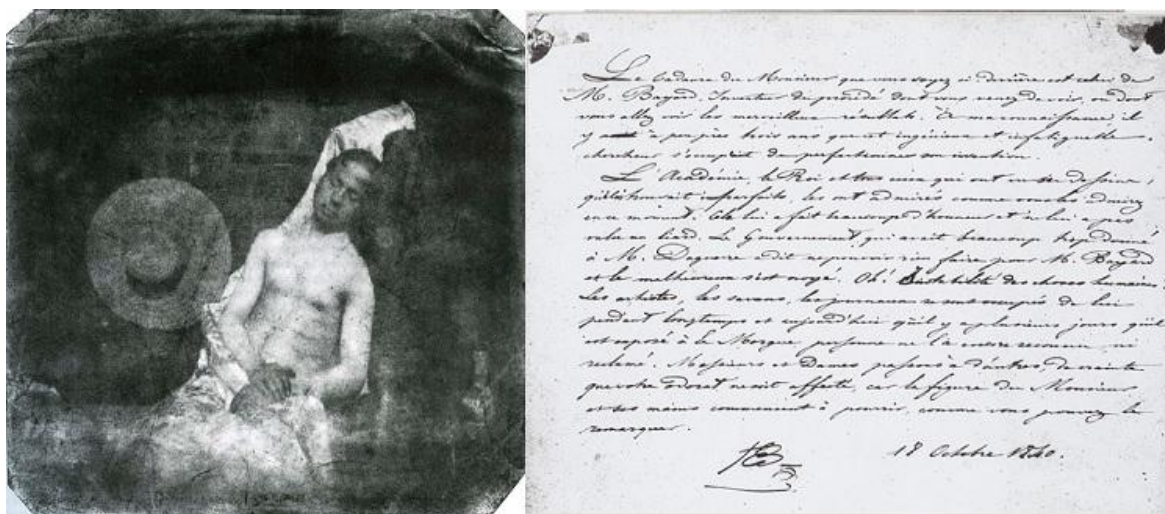 Le cadavre du Monsieur que vous voyez ci derrière est celui de
M. Bayard, Inventeur du procédé dont vous venez de voir, ou dont
vous allez voir les merveilleux résultats. À ma connaissance, il
y a à peu près trois ans que cet ingénieux et infatigable
chercheur s'occupait de perfectionner son invention.
L'Académie, le Roi et tous ceux qui ont vu ses dessins,
qu'il trouvait imparfaits, les ont admirés comme vous les admirez
en ce moment. Cela lui a fait beaucoup d'honneur et ne lui a pas
valu un liard. Le Gouvernement, qui avait beaucoup trop donné
à M. Daguerre a dit ne pouvoir rien faire pour M. Bayard
et le malheureux s'est noyé. Oh! Instabilité des choses humaines!
Les artistes, les savans, les journaux se sont occupés de lui
pendant longtemps et aujourd'hui qu'il y a plusieurs jours qu'il
est exposé à la Morgue personne ne l'a encore reconnu, ni
réclamé. Messieurs et Dames, passons à d'autres, de crainte
que votre odorat ne soit affecté, car la figure du Monsieur
et ses mains commencent à pourrir, comme vous pouvez le
remarquer.
18 Octobre 1840.